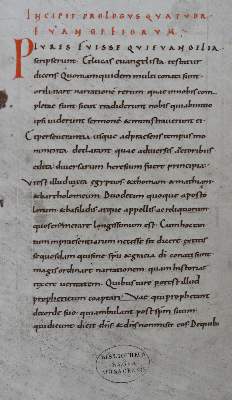 INCIPIT PROLOGUS QUATUOR
EUANGELIORUM.
PLURES FUISSE QUI EUANGELIA
scripserunt. & lucas euangelista testatur
dicens Quoniam quidem multi conati sunt
ordinare narrationem rerum quae in nobis com
pletae sunt sicut tradiderunt nobis qui ab initio
ipsi uiderunt sermone & ministrauerunt ei.
& perseuerantia usque ad praesens tempus monu
menta declarant quae a diuersis auctoribus
edita diuersarum heresium fuere principia
Ut est illud iuxta egyptios & thoman & mathian
& bartholomeum. Duodecim quoque aposto
lorum & basilidis atque appellis ac reliquorum
quos enumerare longissimum est. Cum hoc tan
tum in praesentiarum necesse sit dicere. extitisse
quosdam qui sine spu & gratia di conati sunt
magis ordinare narrationem quam historiae
texere ueritatem. Quibus iure potest illud
propheticum coaptari Vae qui prophetant
de corde suo qui ambulant post spm suum
qui dicunt dicit dns & dns non misit eos De quib;
BIBLIOTHECA